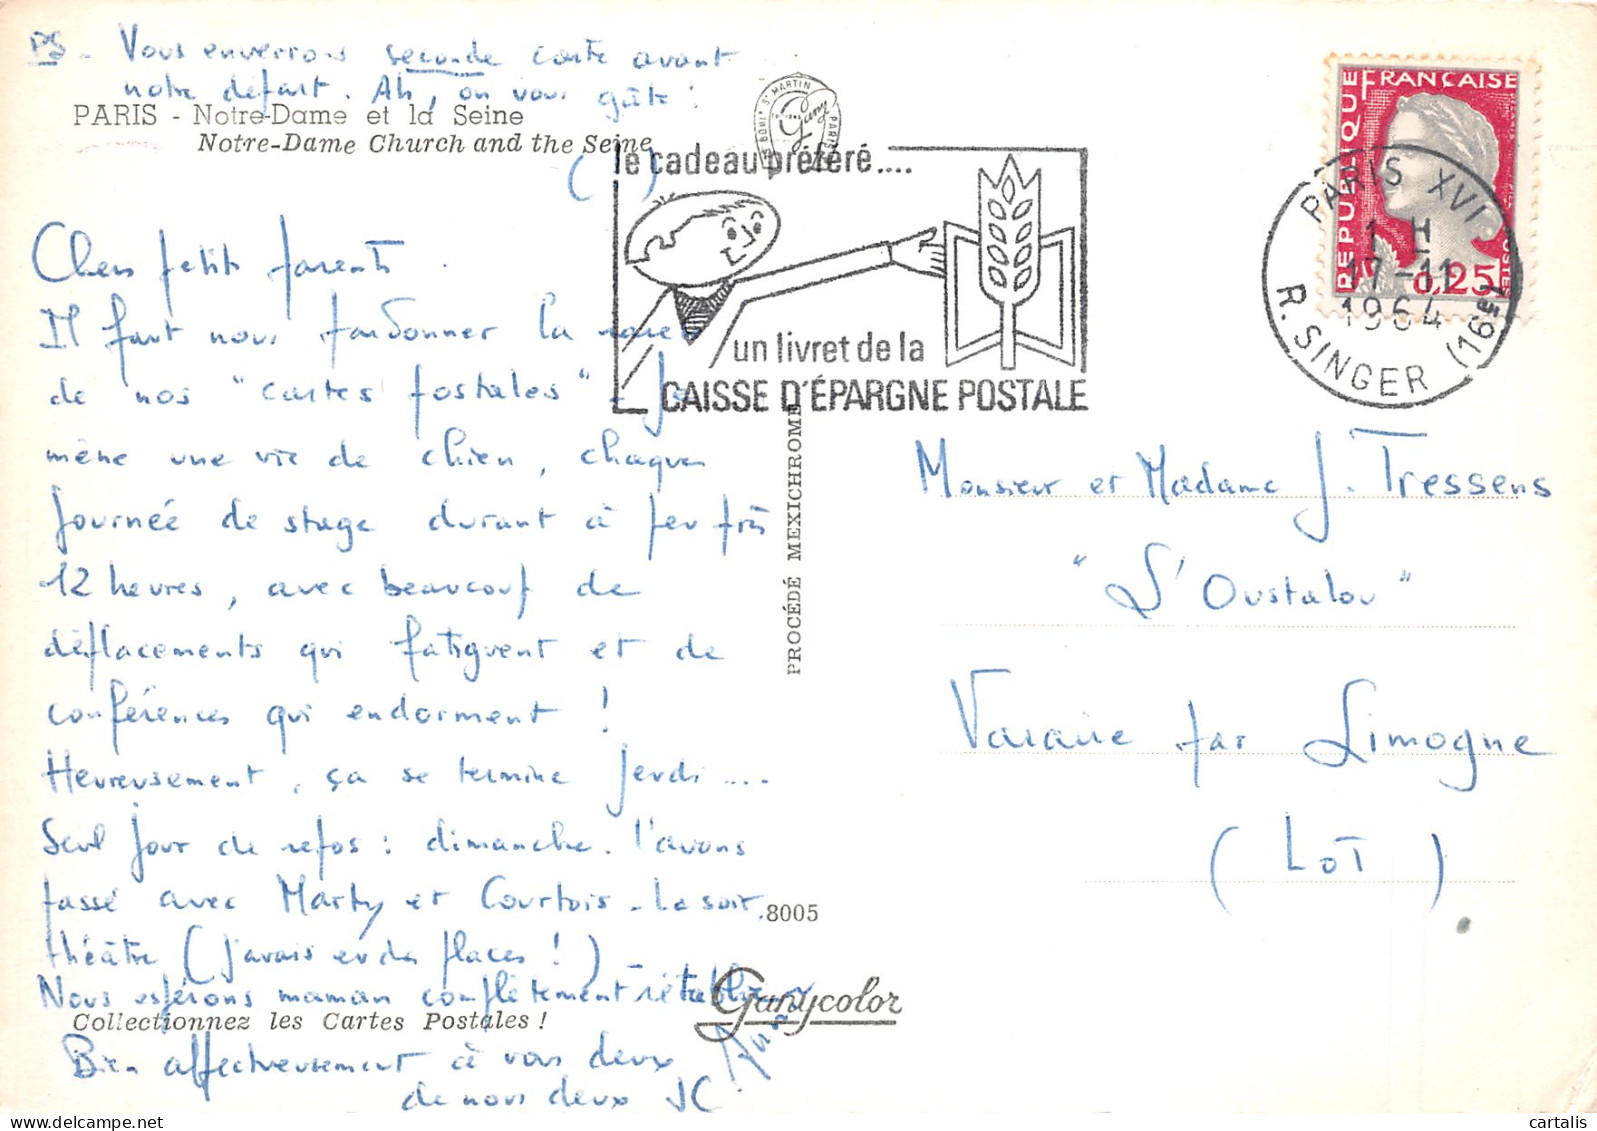 PS - Vous enverrons seconde carte avant
notre départ. Ah, on vous gâte !
PARIS - Notre-Dame et la Seine
Notre-Dame Church and the Seine
( )
Bould St MARTIN PARIS
Gany
le cadeau préféré....
un livret de la
CAISSE D'ÉPARGNE POSTALE
REPUBLIQUE FRANÇAISE
0,25
PARIS XVI
1 H
17-11
1964
R. SINGER (16e)
Chers petits parents.
Il faut nous pardonner la
de nos "cartes postales" - Je
mène une vie de chien, chaque
journée de stage durant à peu près
12 heures, avec beaucoup de
déplacements qui fatiguent et de
conférences qui endorment !
Heureusement, ça se termine jeudi ....
Seul jour de repos : dimanche. l'avons
passé avec Marty et Courtois - Le soir,
théâtre (j'avais eu des places !)
Nous espérons maman complètement rétablie
Collectionnez les Cartes Postales !
Bien affectueusement à vous deux
de nous deux JC
PROCÉDÉ MEXICHROME
8005
Ganycolor
Monsieur et Madame J. Tressens
"L'Oustalou"
Varaire par Limogne
(LOT)
cartalis